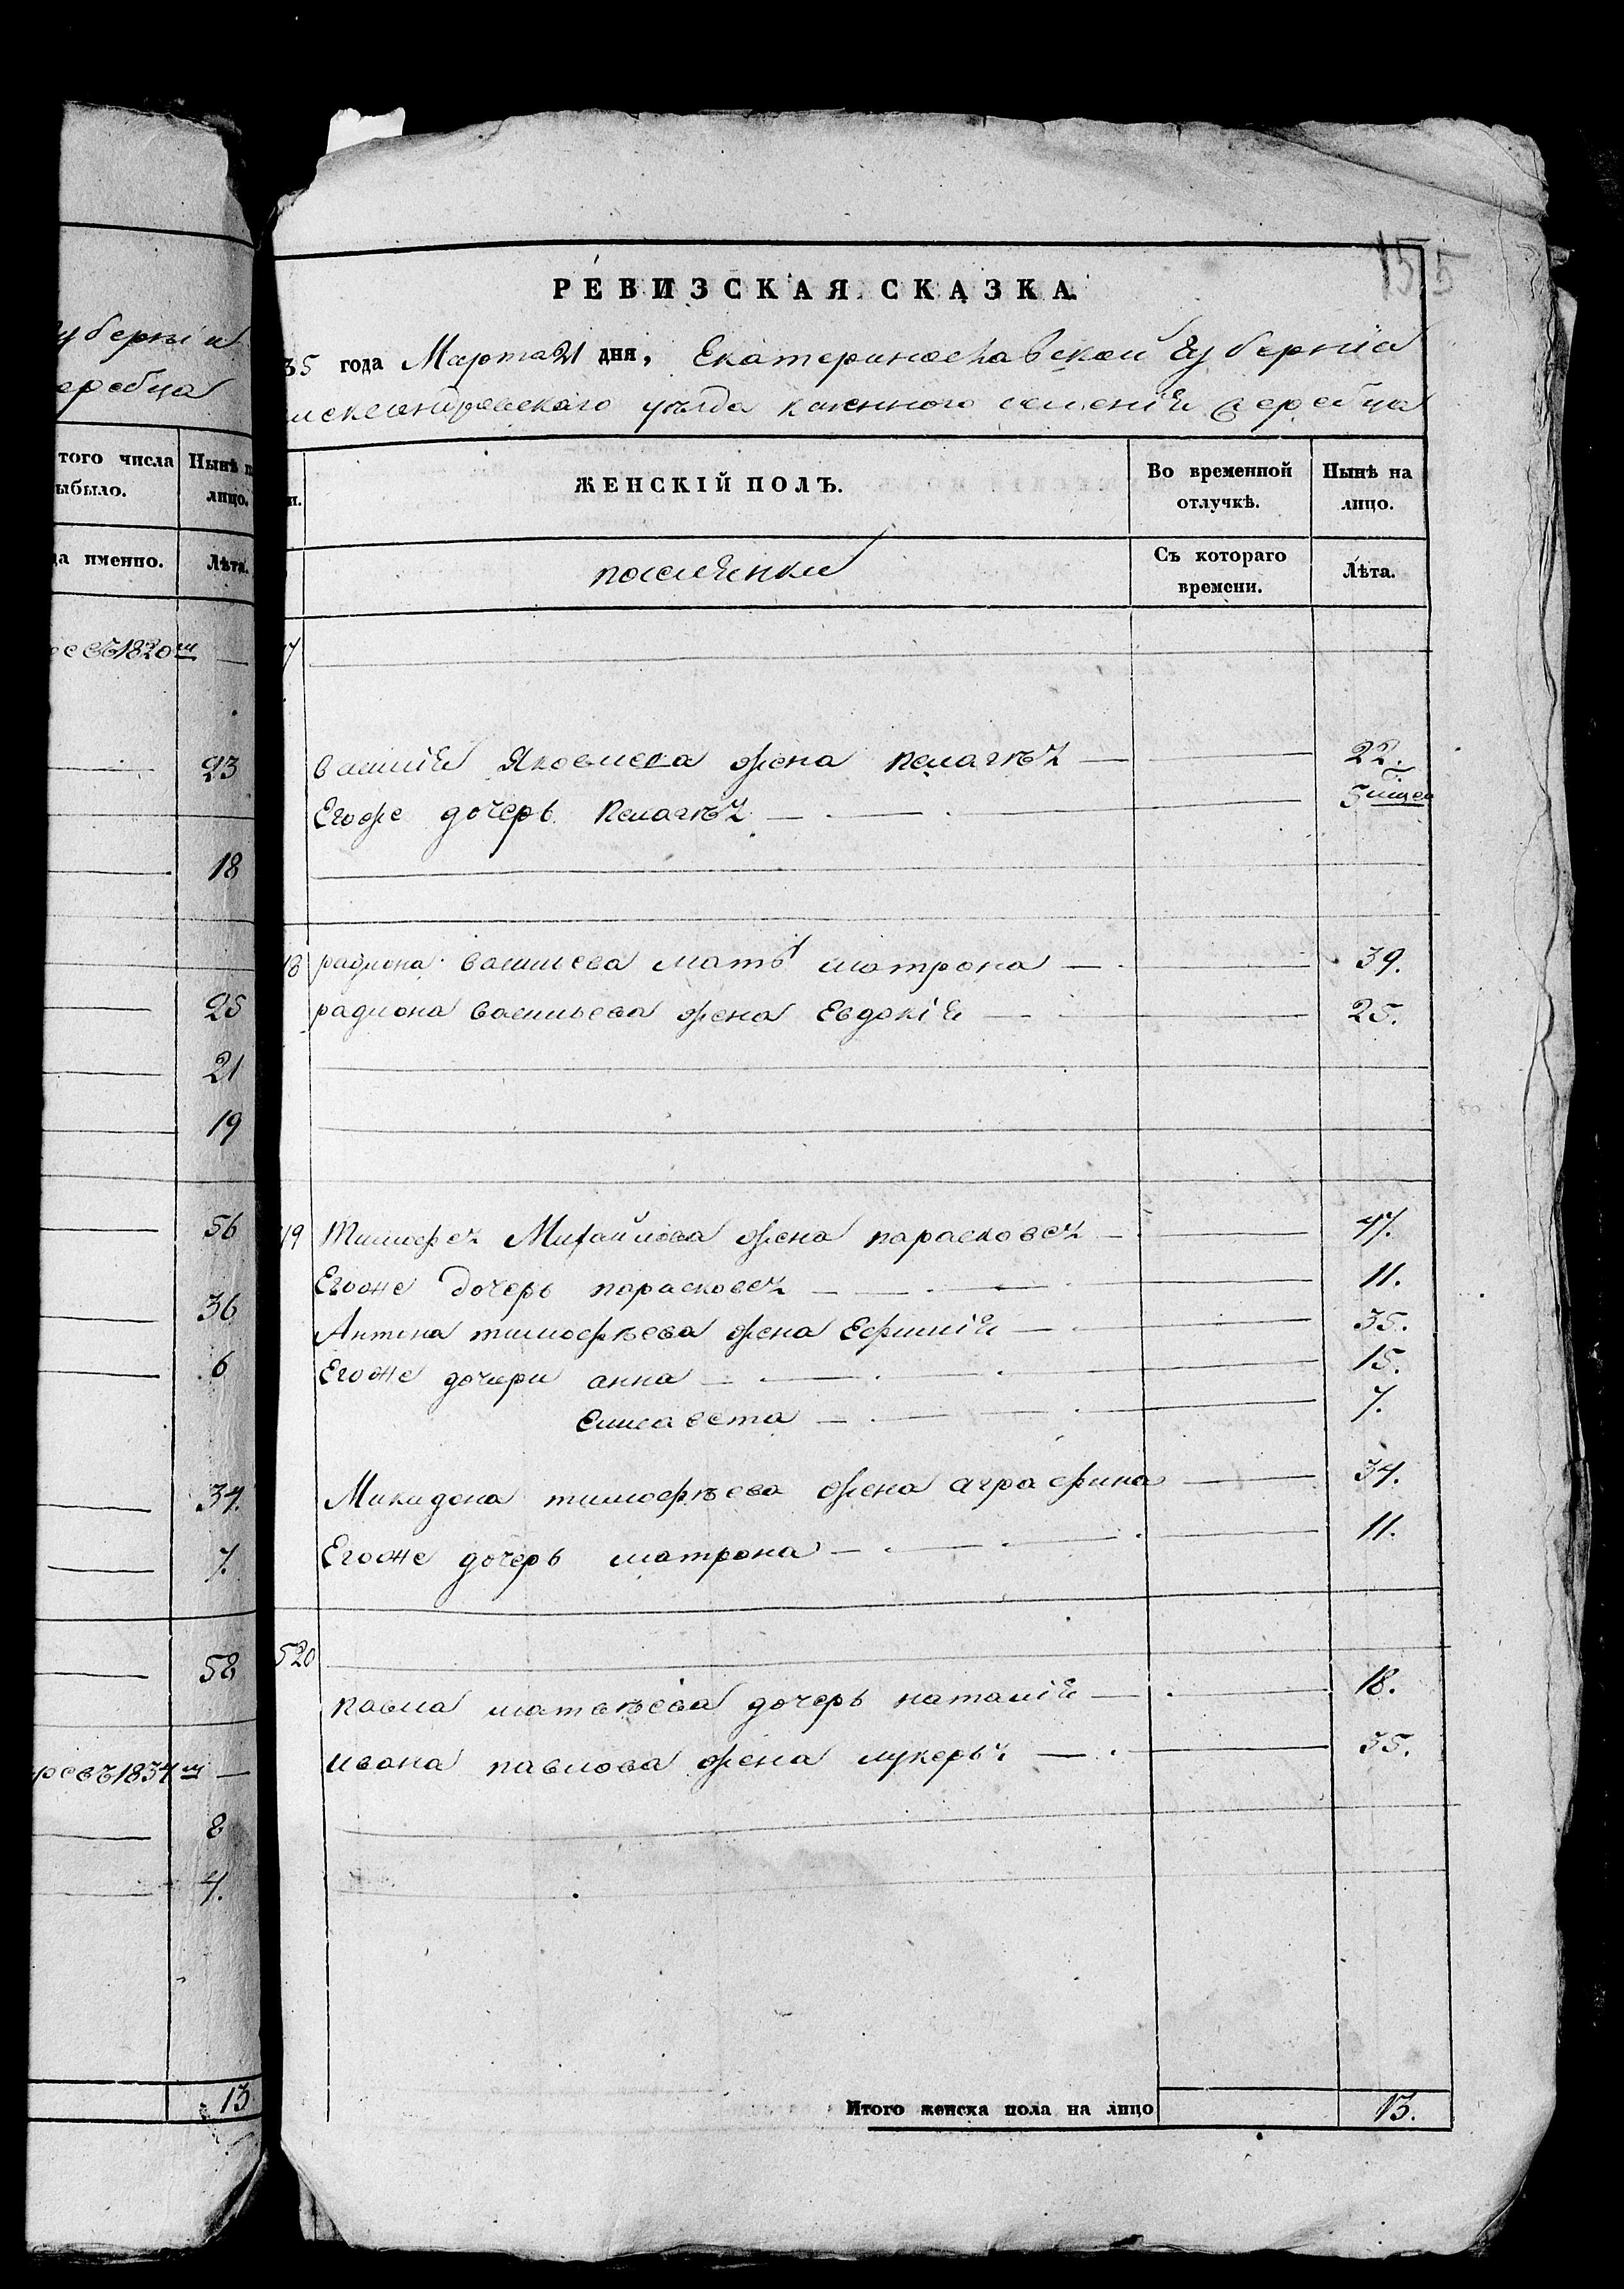 губерніи
еребца
того числа
ыбыло.
Нынѣ н
лицо.
да именно.
Лѣта.
въ 1820м —
23
18
25
21
19
56
36
6
34.
7.
58
въ 1834м —
8
4.
13.
155
РЕВИЗСКАЯ СКАЗКА.
35 года Марта 21 дня, Екатеринославской губерніи
лександровскаго уѣзда казенного селенія Жеребца
н.
ЖЕНСКІЙ ПОЛЪ.
Во временной
отлучкѣ.
Нынѣ на
лицо.
поселянки
Съ котораго
времени.
Лѣта.
7
василія Яковлева жена пелагѣя — 22.
Егоже дочерь пелагѣя — 5
18 радиона васильева мать матрона — 39.
радиона васильева жена Евдокія — 25.
19 Тимофея Михайлова жена парасковея — 47.
Егоже дочерь парасковея — 11.
Антона тимофѣева жена Ефимія — 35.
Егоже дочери анна — 15.
Елисавета — 7.
Микидона тимофѣева жена аграфина — 34.
Егоже дочерь матрона — 11.
520
павла матвѣева дочерь наталія — 18.
ивана павлова жена лукерья — 35.
Итого женска пола на лицо 13.